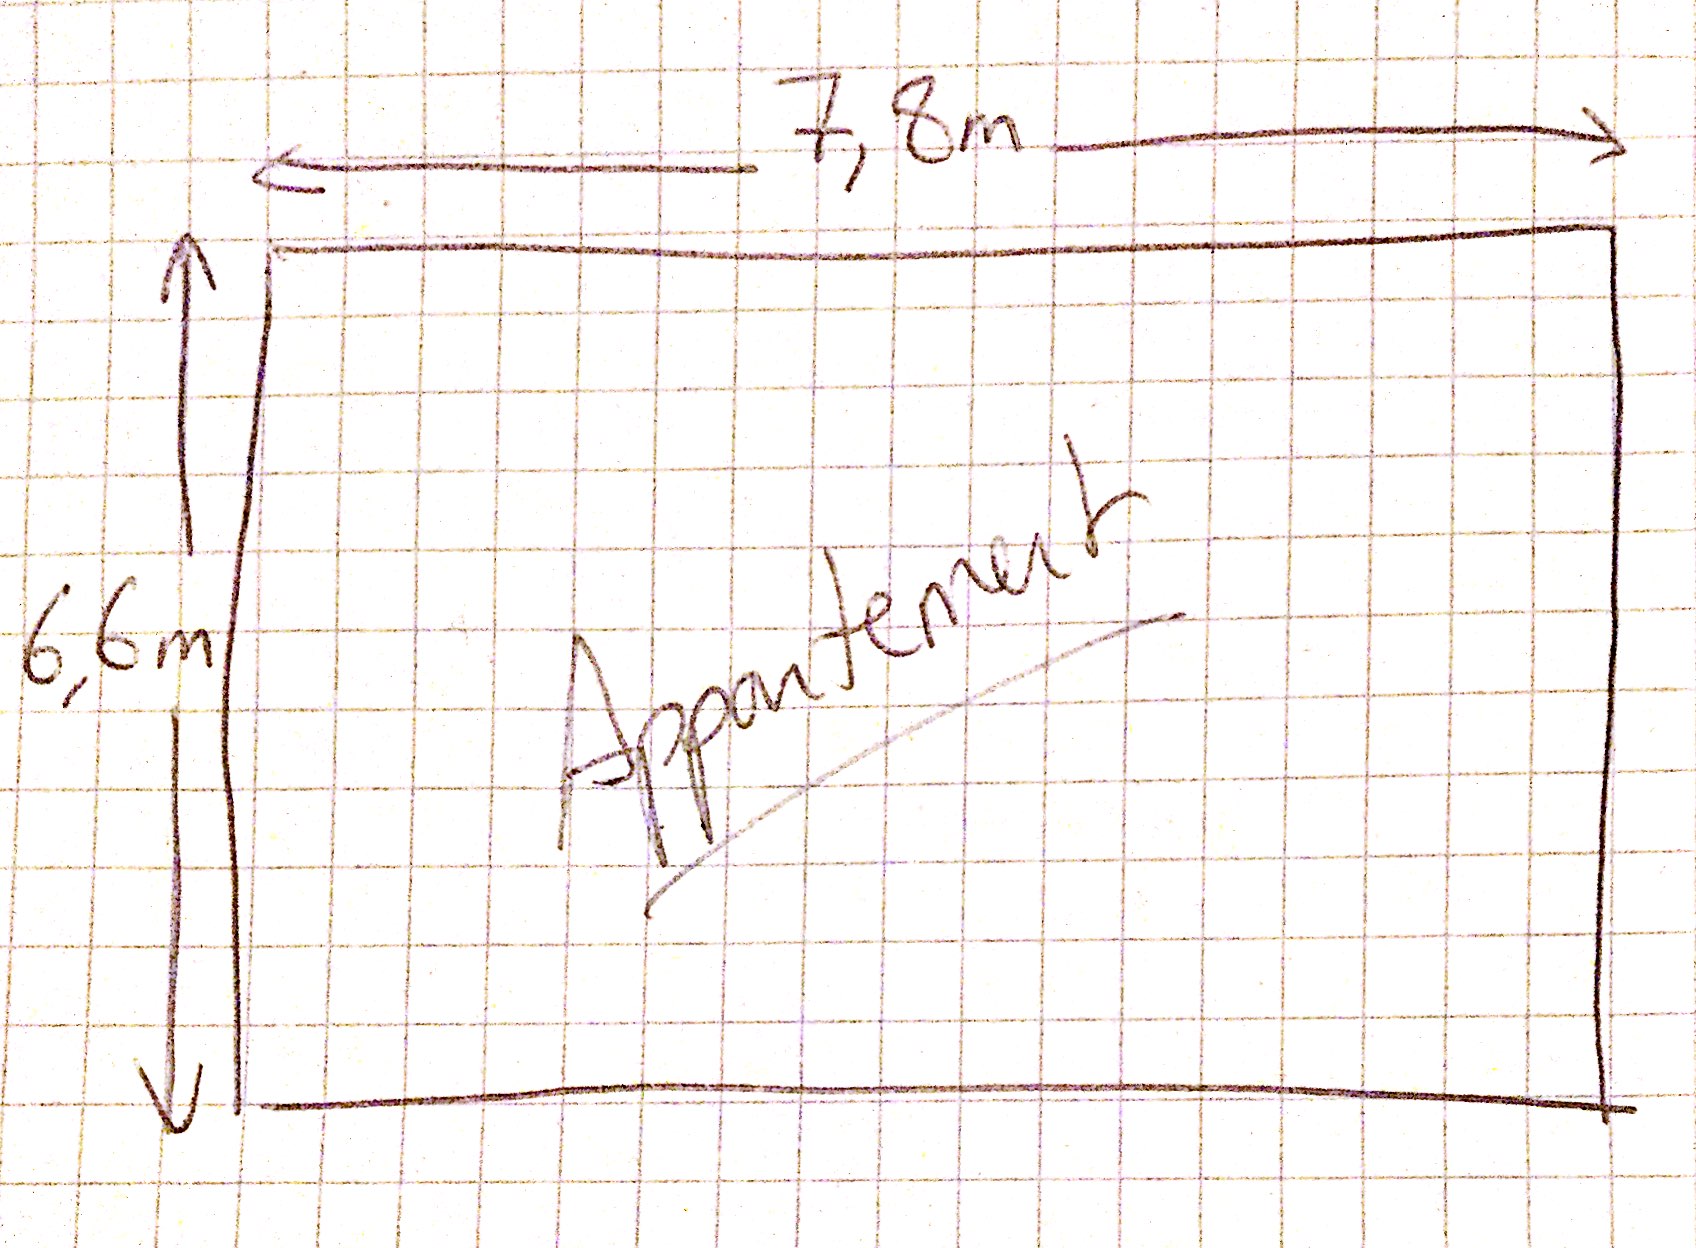 7,8m
6,6m
Appartement